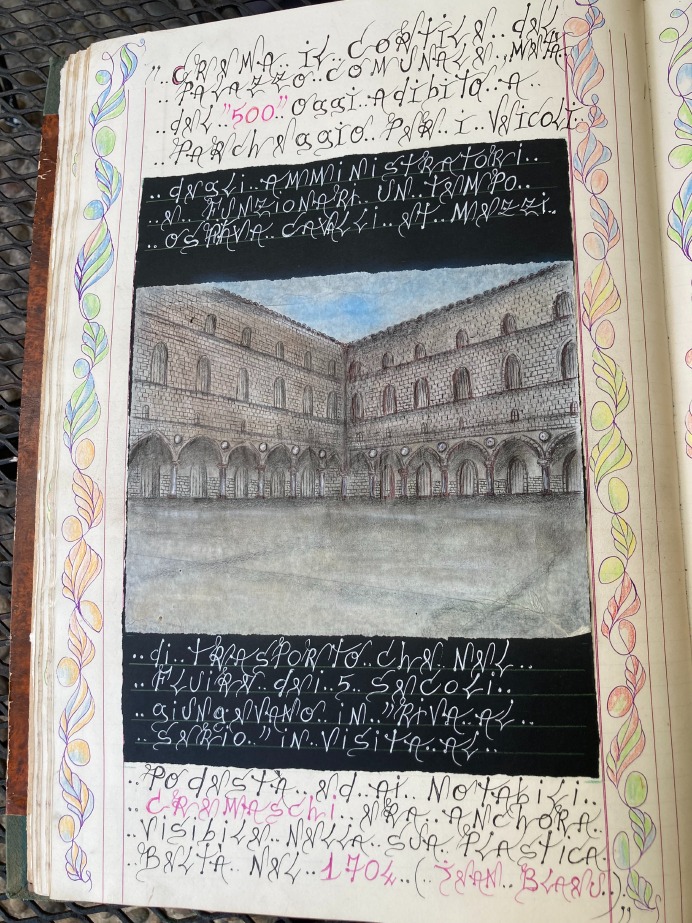 ".. CREMA.. IL.. CORTILE.. del
.. PALAZZO.. COMUNALE.. METÀ..
.. del.. "500".. oggi.. Adibito.. A..
.. PARcheggio.. PER.. i.. VEicoli..
.. degli.. AMMiNiSTRATORi..
.. E.. FUNZIONARi.. UN.. TEMPO..
.. OSPITAVA.. CAVALLi.. Et.. MEZZi..
.. di.. TRASPORTO.. che.. NEL..
.. FLUIRE.. dei.. 5.. SECOLi..
.. giUNgEVANO.. iN.. "RiVA.. AL..
.. SERIO.." iN.. ViSiTA.. AL..
.. POdESTÀ.. Ed.. Ai.. NOTAbiLi..
.. CREMASchi.. ERA.. ANchORA..
.. ViSibiLE.. NELLA.. SUA.. PLASTiCA..
.. BELTÀ.. NEL.. 1704.. (.. JEAN.. BLAEU.. )..."